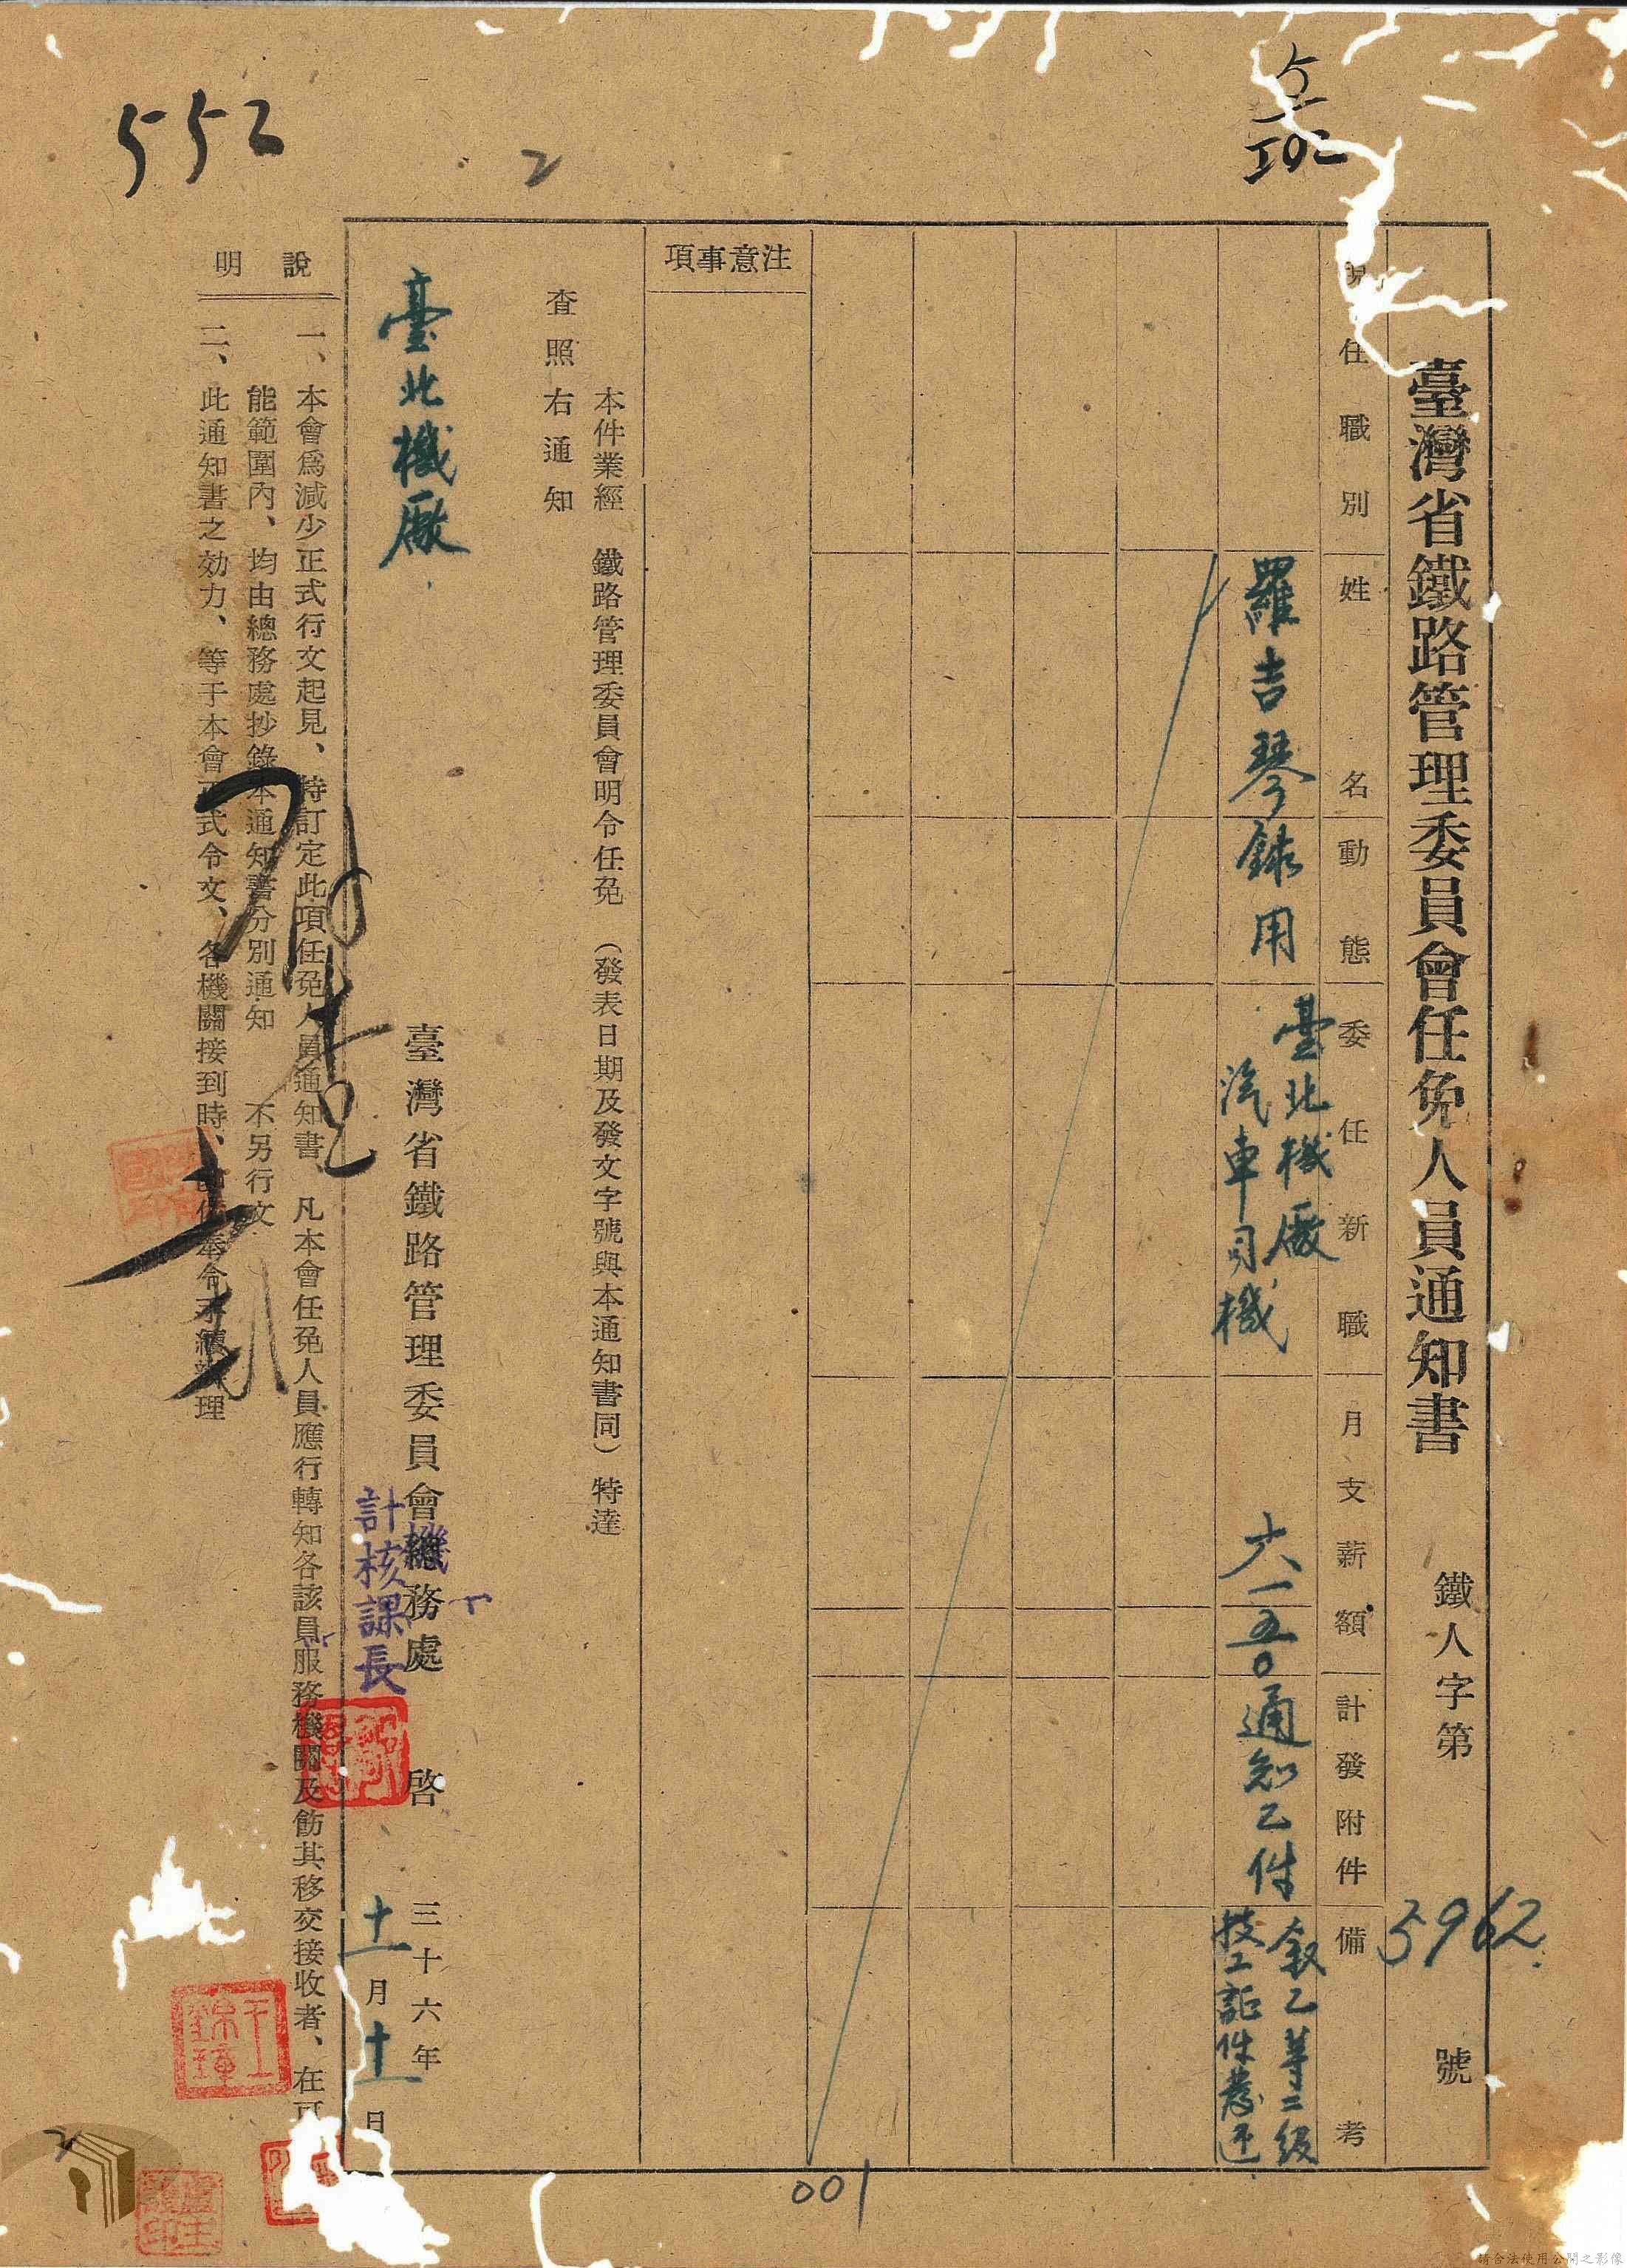 552
2
臺灣省鐵路管理委員會任免人員通知書
鐵人字第 5962 號
現任職別
姓名
動態
委任新職
月支薪額
計發附件
備考
羅吉琴
錄用
臺北機廠
汽車司機
六一五〇
通知乙件
敘乙等二級
技工証件發还
注意事項
本件業經 鐵路管理委員會明令任免 (發表日期及發文字號與本通知書同) 特達
查照右通知
臺北機廠
臺灣省鐵路管理委員會總務處 啓
計核課長
三十六年
十一月十一日
說明
一、本會爲減少正式行文起見、特訂定此項任免人員通知書、凡本會任免人員應行轉知各該員服務機關及飭其移交接收者、在可
能範圍內、均由總務處抄錄本通知書分別通知 不另行文
二、此通知書之効力、等于本會正式令文、各機關接到時、奉令手續辦理
001
請合法使用公開之影像